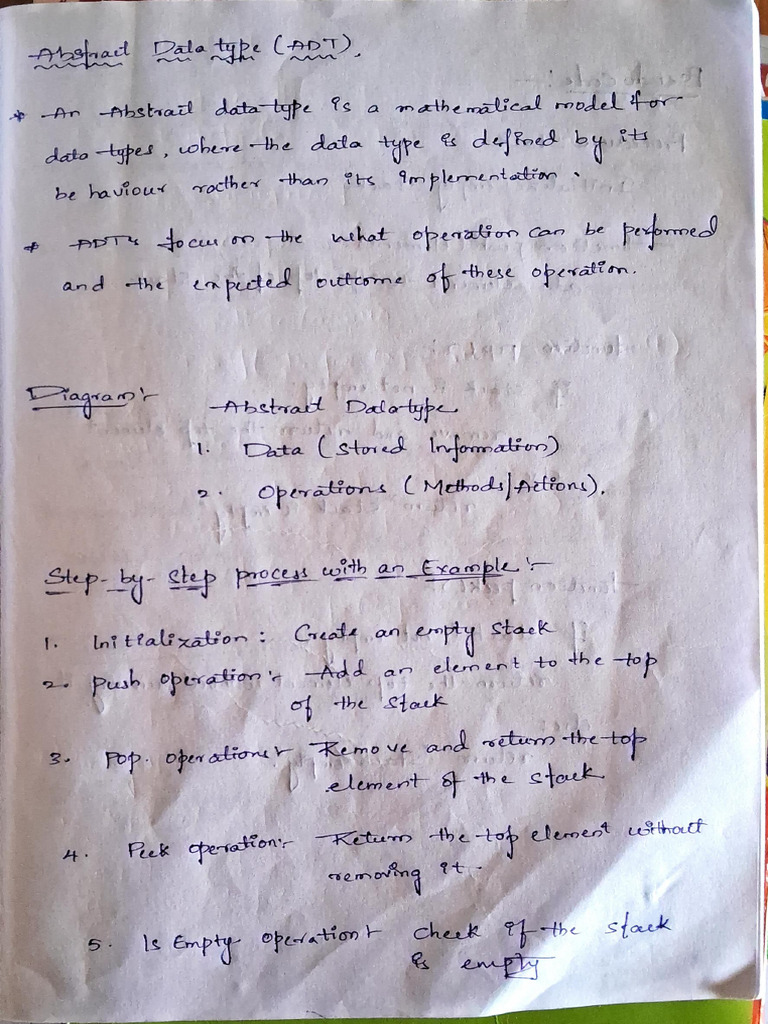 Abstract Data type (ADT).
* An Abstract data type is a mathematical model for
data types, where the data type is defined by its
be haviour rather than its implementation.
* ADT's focus on the what operation can be performed
and the expected outcome of these operation.
Diagram:-
Abstract Data type
1. Data (Stored Information)
2. Operations (Methods/Actions).
Step-by-step process with an Example:-
1. Initialization: Create an empty stack
2. push operation:- Add an element to the top
of the stack
3. Pop. operation:- Remove and return the top
element of the stack
4. Peek operation:- Return the top element without
removing it.
5. Is Empty operation:- check if the stack
is empty